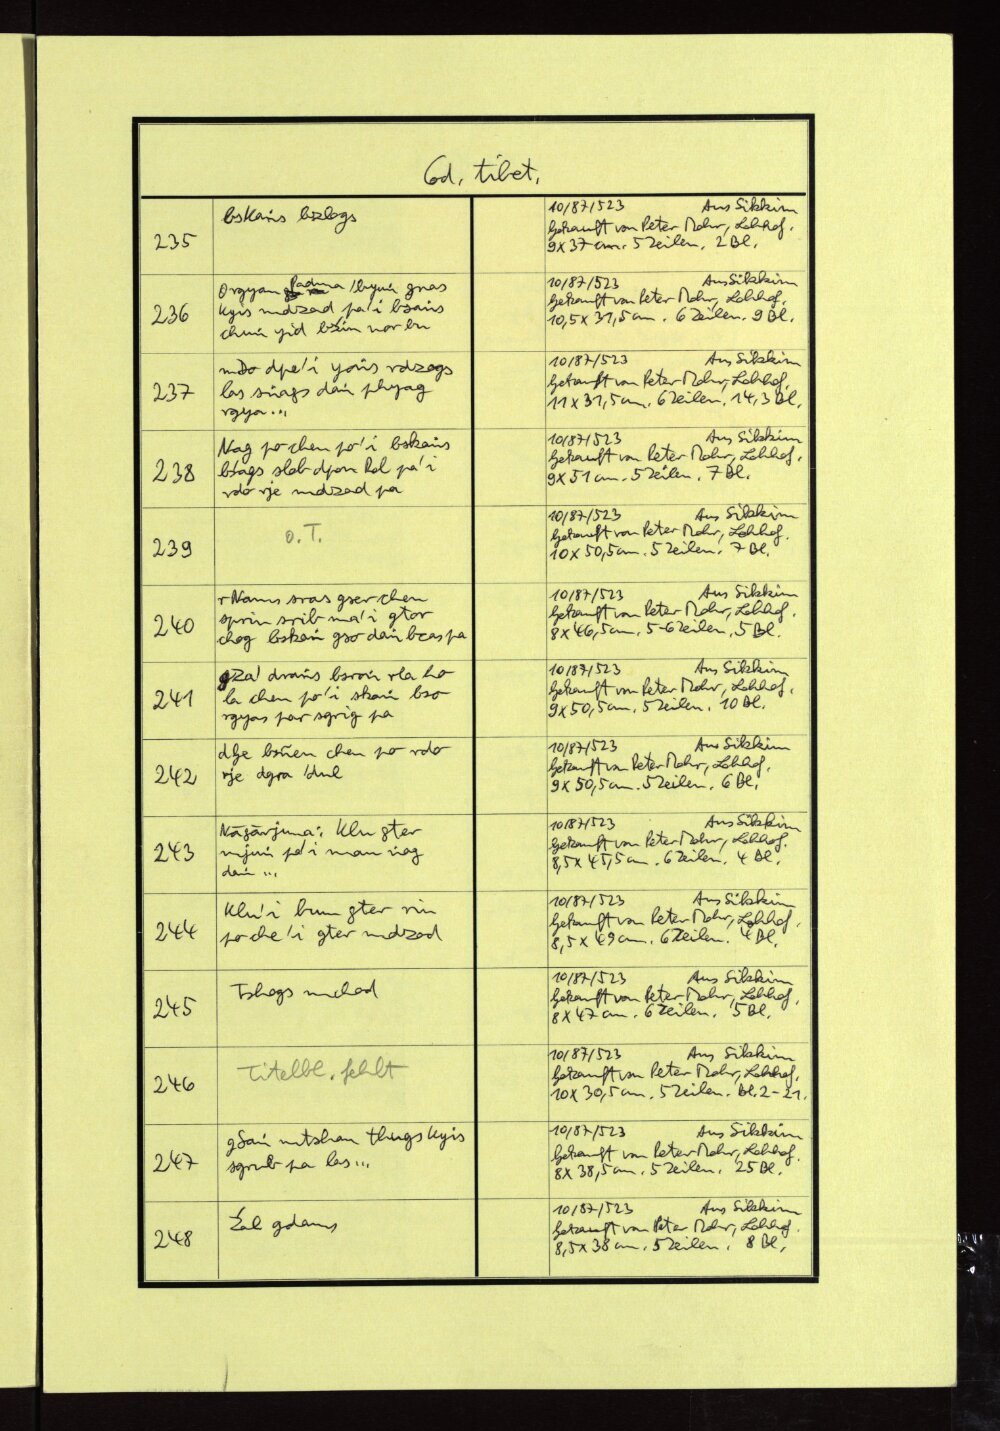 Cod. tibet.
235
bskaṅs bzlogs
10/87/523 Aus Sikkim
Gekauft von Peter Mohr, Lohhof.
9x37 cm. 5 Zeilen. 2 Bl.
236
Orgyan Padma 'byuṅ gnas
kyis mdzad pa'i bsaṅs
chuṅ yid bźin nor bu
10/87/523 Aus Sikkim
Gekauft von Peter Mohr, Lohhof.
10,5x31,5 cm. 6 Zeilen. 9 Bl.
237
mDo dpe'i yoṅs rdzogs
las sṅags daṅ phyag
rgya...
10/87/523 Aus Sikkim
Gekauft von Peter Mohr, Lohhof.
11x31,5 cm. 6 Zeilen. 14,3 Bl.
238
Nag po chen po'i bskaṅs
bśags slob dpon Rol pa'i
rdo rje mdzad pa
10/87/523 Aus Sikkim
Gekauft von Peter Mohr, Lohhof.
9x51 cm. 5 Zeilen. 7 Bl.
239
o.T.
10/87/523 Aus Sikkim
Gekauft von Peter Mohr, Lohhof.
10x50,5 cm. 5 Zeilen. 7 Bl.
240
rNams sras gser chen
sprin srib ma'i gtor
chog bskaṅ gso daṅ bcas pa
10/87/523 Aus Sikkim
Gekauft von Peter Mohr, Lohhof.
8x46,5 cm. 5-6 Zeilen. 5 Bl.
241
gZa' draṅs bsroṅ rla ho
la chen po'i skaṅ bso
rgyas par sgrig pa
10/87/523 Aus Sikkim
Gekauft von Peter Mohr, Lohhof.
9x50,5 cm. 5 Zeilen. 10 Bl.
242
dGe bsñen chen po rdo
rje dgra 'dul
10/87/523 Aus Sikkim
Gekauft von Peter Mohr, Lohhof.
9x50,5 cm. 5 Zeilen. 6 Bl.
243
Nāgārjuna: Klu gter
mjuṅ pa'i man ṅag
daṅ ...
10/87/523 Aus Sikkim
Gekauft von Peter Mohr, Lohhof.
8,5x45,5 cm. 6 Zeilen. 4 Bl.
244
Klu'i bum gter rin
po che'i gter mdzod
10/87/523 Aus Sikkim
Gekauft von Peter Mohr, Lohhof.
8,5x49 cm. 6 Zeilen. 4 Bl.
245
Tshogs mchod
10/87/523 Aus Sikkim
Gekauft von Peter Mohr, Lohhof.
8x47 cm. 6 Zeilen. 5 Bl.
246
Titelbl. fehlt
10/87/523 Aus Sikkim
Gekauft von Peter Mohr, Lohhof.
10x30,5 cm. 5 Zeilen. Bl. 2-21.
247
gSaṅ mtshan thugs kyis
sgrub pa las...
10/87/523 Aus Sikkim
Gekauft von Peter Mohr, Lohhof.
8x38,5 cm. 5 Zeilen. 25 Bl.
248
Źal gdams
10/87/523 Aus Sikkim
Gekauft von Peter Mohr, Lohhof.
8,5x38 cm. 5 Zeilen. 8 Bl.